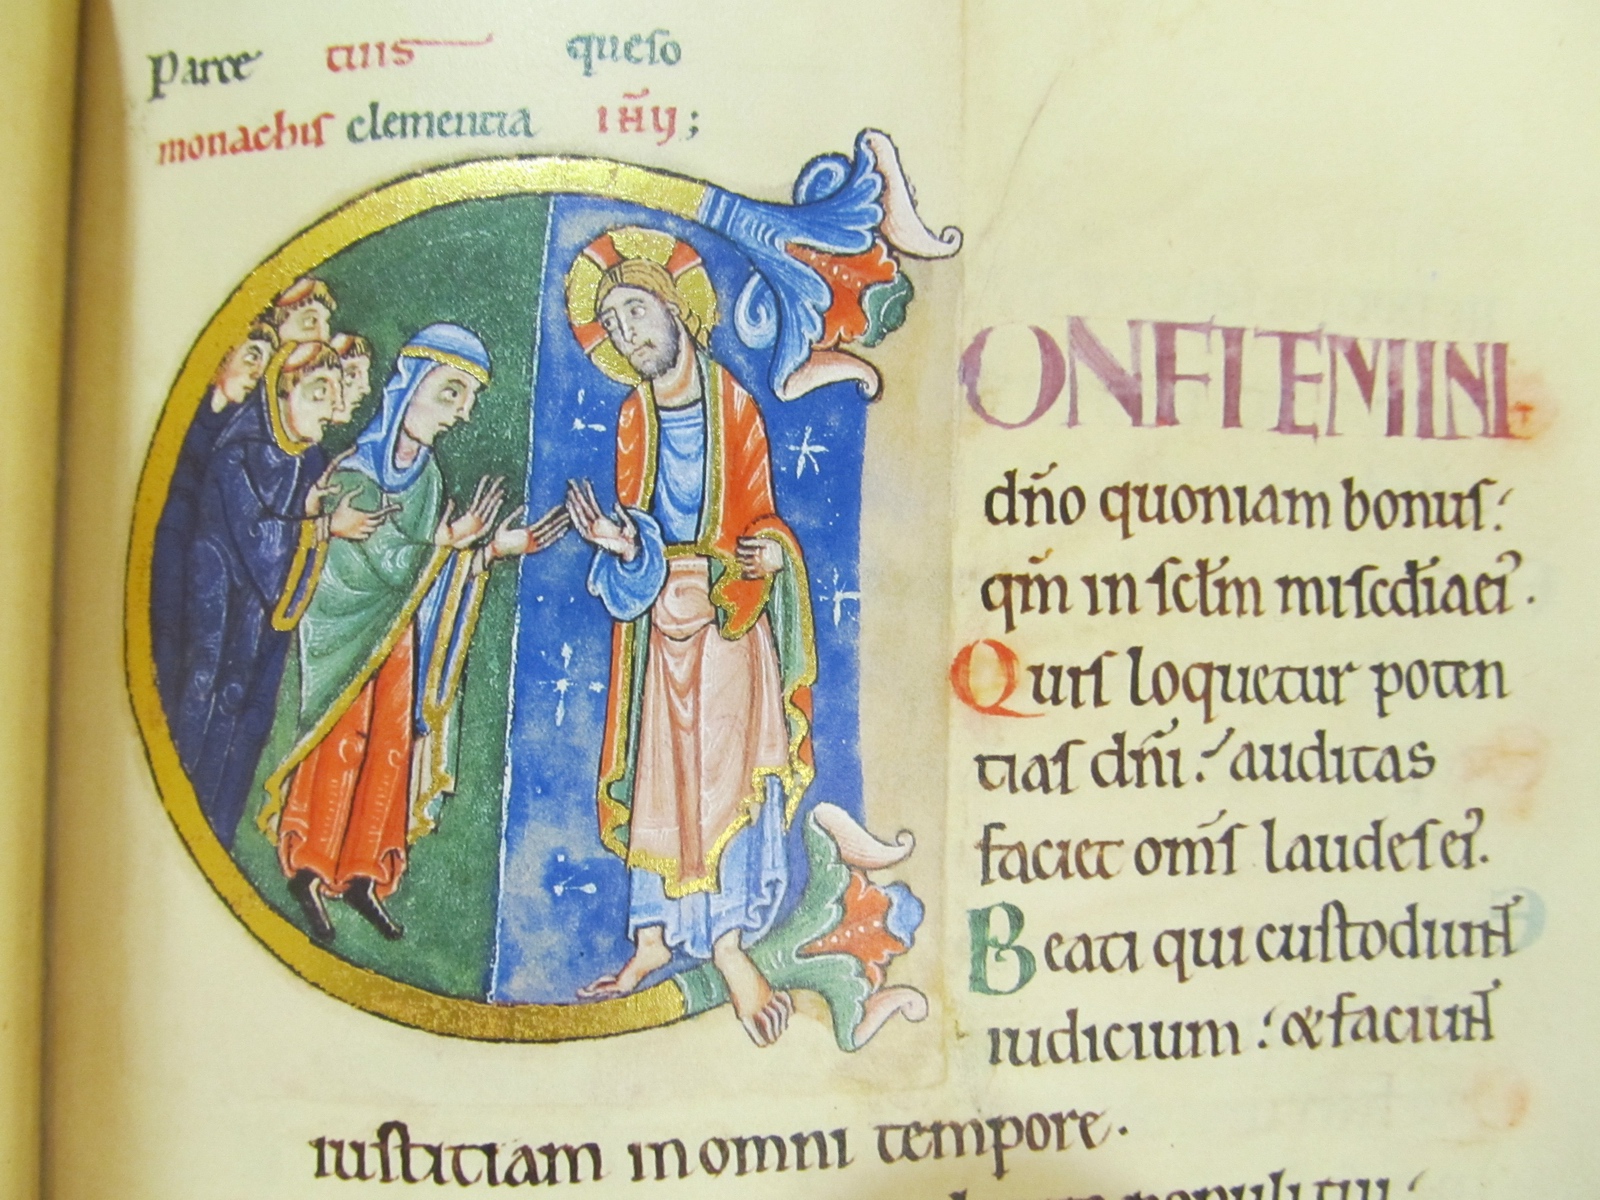 Parce tuis queso
monachis clementia ihu;
CONFITEMINI
dño quoniam bonus:
qm̄ in sclm misc̄dia ei'.
Quis loquetur poten
tias dñi: auditas
faciet om̄s laudes ei'.
Beati qui custodiunt
iudicium: & faciunt
iustitiam in omni tempore.
populi tui